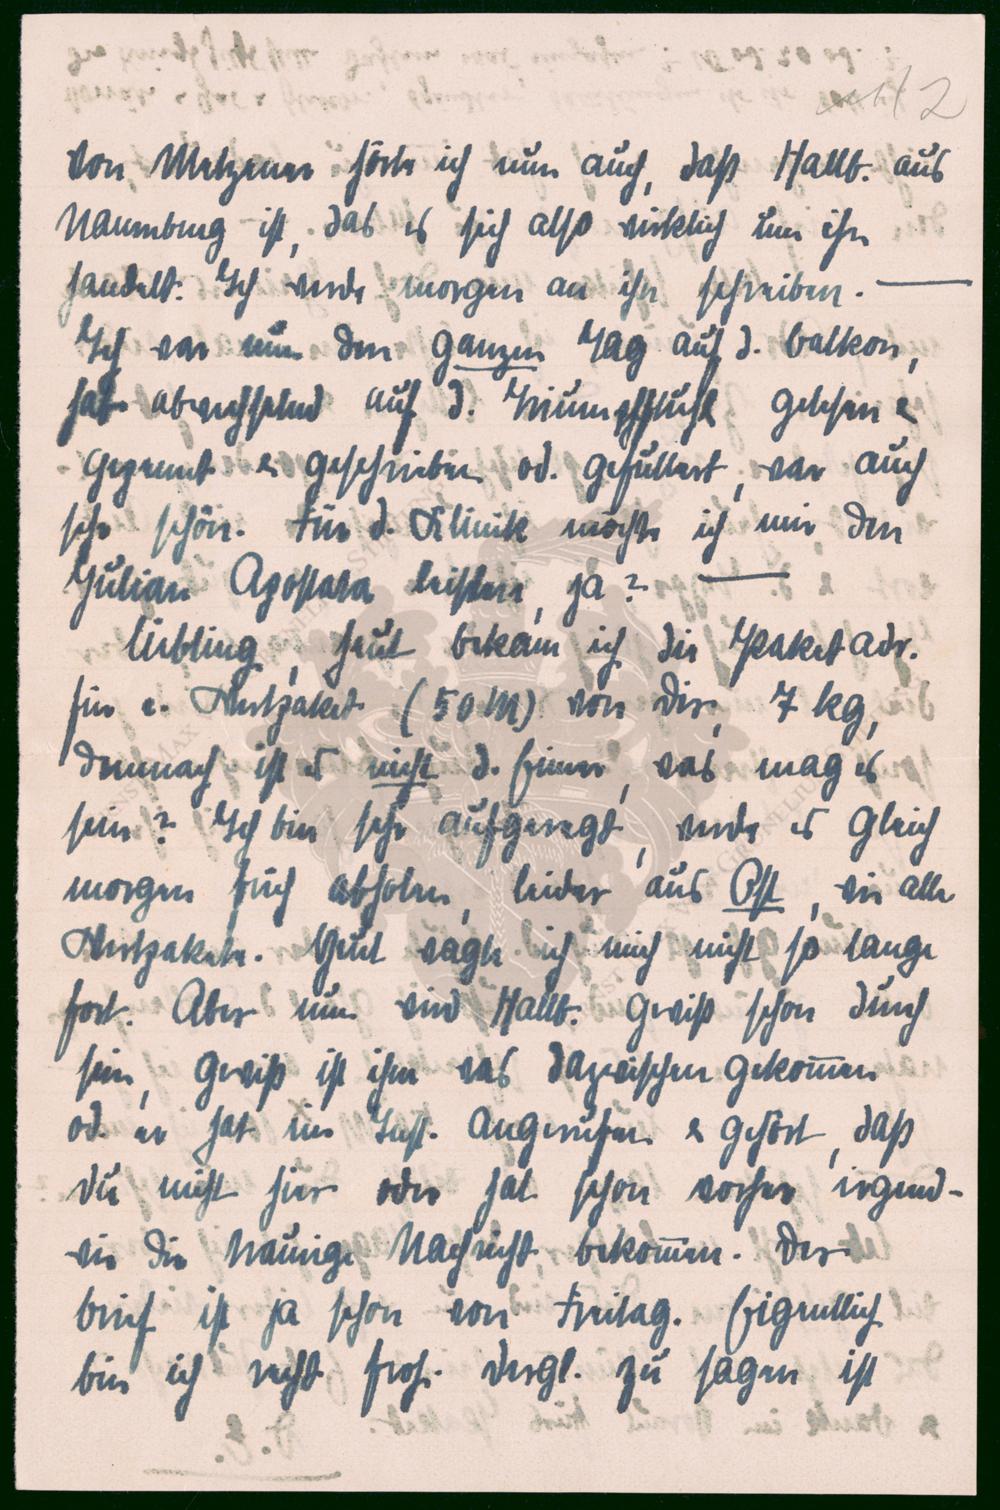 2
Von Metzener hörte ich nun auch, daß Hallb. aus
Naumburg ist, das es sich also wirklich um ihn
handelt. Ich werde morgen an ihn schreiben. —
Ich war nun den ganzen Tag auf d. balkon,
hab abwechselnd auf d. Triumphstuhl gelesen &
gepennt & geschrieben od. gefuttert, war auch
sehr schön. Für d. Klinik möchte ich mir den
Julian Apostata leisten, ja? —
Liebling, heut bekam ich die Paketadr.
für e. Wertpaket (50 M) von dir, 7 kg,
demnach ist es nicht d. Eimer, was mag es
sein? Ich bin sehr aufgeregt, werde es gleich
morgen früh abholen, leider aus Ost, wie alle
Wertpakete. Heut wagte ich mich nicht so lange
fort. Aber nun wird Hallb. gewiß schon durch
sein, gewiß ist ihm was dazwischen gekommen
od. er hat im Inst. angerufen & gehört, daß
du nicht hier oder hat schon vorher irgend-
wie die traurige Nachricht bekommen. Der
brief ist ja schon von Freitag. Eigentlich
bin ich recht froh. dergl. zu sagen ist